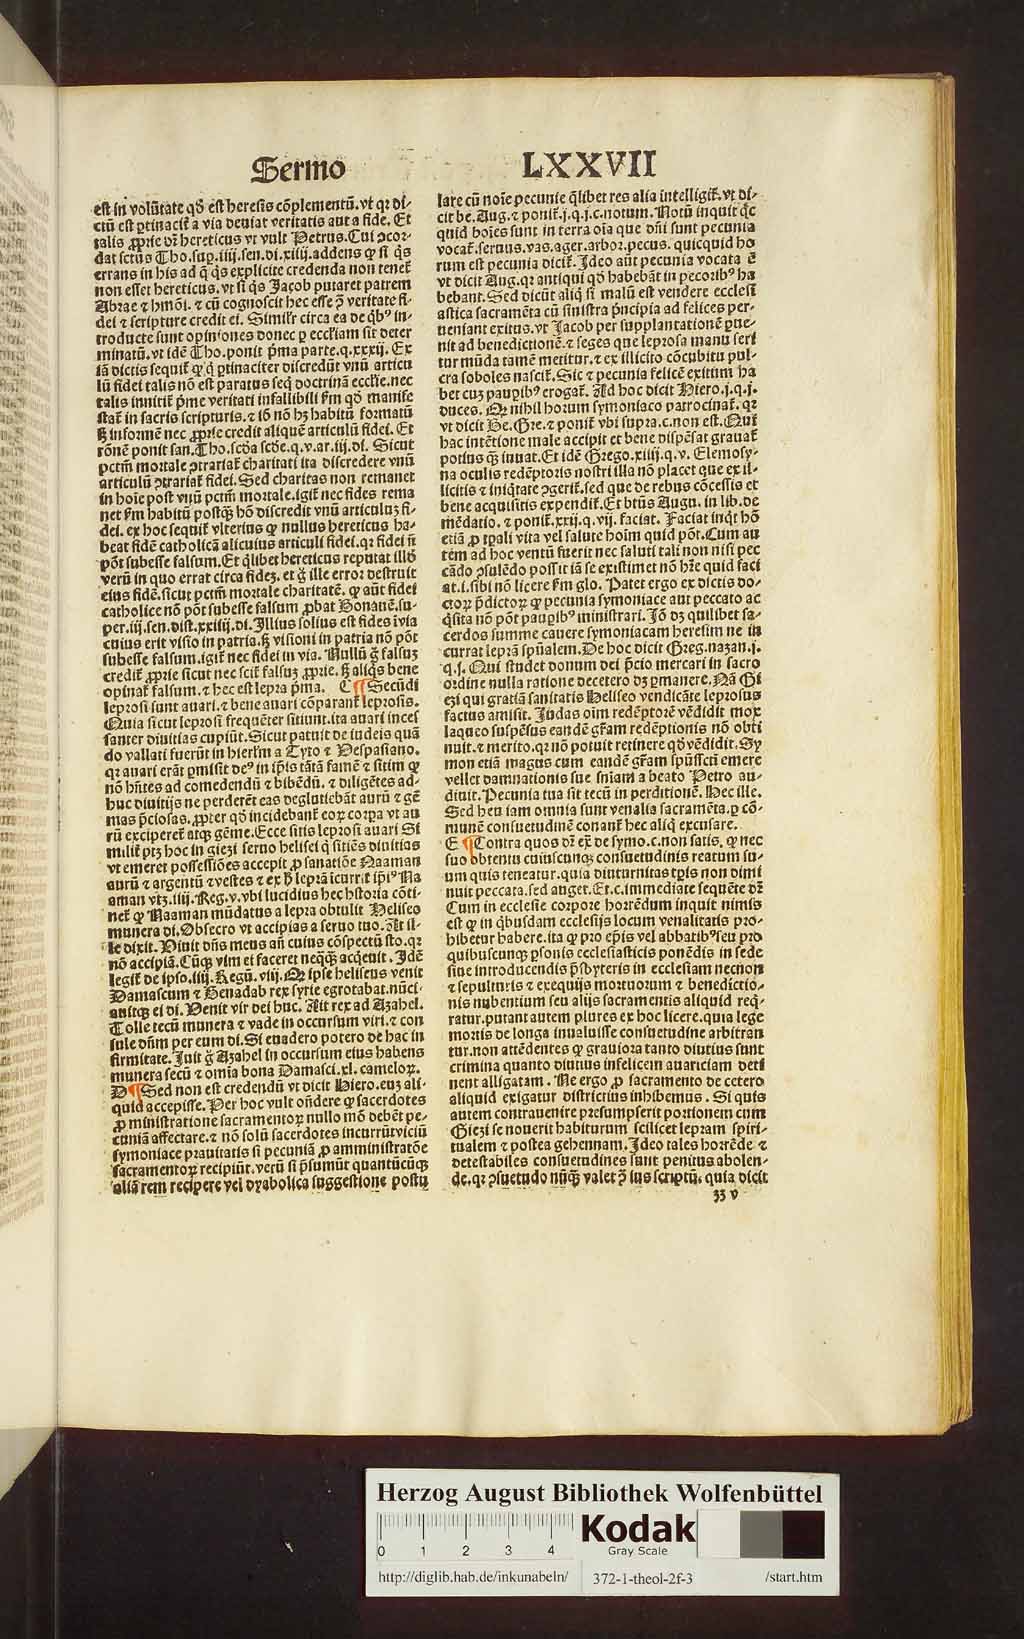 Sermo LXXVII
est in volūtate qḋ est heresis cōplementū. vt qꝛ di-
ctū est ꝑtinacit᷑ a via deuiat veritatis aut a fide. Et
talis ꝓprie dꝛ hereticus vt vult Petrus. Cui ꝯcor-
dat sctūs Tho. suꝑ. iiij. sen. di. xiiij. addens ꝙ si q̄s
errans in his ad q̄ q̄s explicite credenda non tenet᷑
non esset hereticus. vt si q̄s Jacob putaret patrem
Abrae ⁊ hmōi. ⁊ cū cognoscit hec esse ꝯ̄ veritatē fi-
dei ⁊ scripture credit ei. Similr̄ circa ea de qͥbꝰ in-
troducte sunt opiniones donec ꝑ eccliam sit deter
minatū. vt idē Tho. ponit p̄ma parte. q. xxxij. Ex
iā dictis sequit᷑ ꝙ q̄ ꝑtinaciter discredūt vnū articu
lū fidei talis nō est paratus seq̄ doctrinā ecclīe. nec
talis innitit᷑ p̄me veritati infallibili ẜm qḋ manife
stat᷑ in sacris scripturis. ⁊ iō nō hꝫ habitū formatū
ꝫ informē nec ꝓprie credit aliquē articulū fidei. Et
rōnē ponit san. Tho. scda scde. q. v. ar. iij. di. Sicut
pctm̄ mortale ꝯtrariat᷑ charitati ita discredere vnū
articulū ꝯtrariat᷑ fidei. Sed charitas non remanet
in hoīe post vnū pctm̄ mortale. igit᷑ nec fides rema
net ẜm habitū postqꝫ hō discredit vnū articulū fi-
dei. ex hoc sequit᷑ vlterius ꝙ nullus hereticus ha-
beat fidē catholicā alicuius articuli fidei. qꝛ fidei nō
pōt subesse falsum. Et q̄libet hereticus reputat illḋ
verū in quo errat circa fideꝫ. et g̊ ille error destruit
eius fidē. sicut pctm̄ mortale charitatē. ꝙ aūt fidei
catholice nō pōt subesse falsum ꝓbat Bonauē. su-
per. iij. sen. dist. xxiij. di. Illius solius est fides ī via
cuius erit visio in patria. ꝫ visioni in patria nō pōt
subesse falsum. igit᷑ nec fidei in via. Nullū g̊ falsuꝫ
credit᷑ ꝓprie sicut nec scit᷑ falsuꝫ ꝓprie. ꝫ aliqͥs bene
opinat᷑ falsum. ⁊ hec est lepra p̄ma. C ¶ Secūdi
leprosi sunt auari. ⁊ bene auari cōparant᷑ leprosis.
Quia sicut leprosi frequēter sitiunt. ita auari inces
santer diuitias cupiūt. Sicut patuit de iudeis quā
do vallati fuerūt in hierlm̄ a Tyto ⁊ Vespasiano.
qꝛ auari erāt ꝑmisit deꝰ in ip̄is tātā famē ⁊ sitim ꝙ
nō hn̄tes ad comedendū ⁊ bibēdū. ⁊ diligētes ad-
huc diuitijs ne perderēt eas deglutiebāt aurū ⁊ gē
mas p̄ciosas. ꝓpter qḋ incidebant᷑ eoꝝ corpa vt au
rū exciperet᷑ atqꝫ gēme. Ecce sitis leprosi auari Si
milit᷑ ptꝫ hoc in giezi seruo helisei q̄ sitiēs diuitias
vt emeret possessiōes accepit ꝓ sanatiōe Naaman
aurū ⁊ argentū ⁊ vestes ⁊ ex ḣ leprā icurrit ip̄iꝰ Na
aman vtꝫ. iiij. Reg. v. vbi lucidius hec historia cōti-
net᷑ ꝙ Naaman mūdatus a lepra obtulit Heliseo
munera di. Obsecro vt accipias a seruo tuo. At il-
le dixit. Viuit dn̄s meus añ cuius cōspectū sto. qꝛ
nō accipiā. Cūqꝫ vim ei faceret neqꝫqꝫ acq̄euit. Idē
legit᷑ de ipso. iiij. Regū. viij. Qꝛ ipse heliseus venit
Damascum ⁊ Benadab rex syrie egrotabat. nūci-
auitqꝫ ei di. Venit vir dei huc. Ait rex ad Azahel.
Tolle tecū munera ⁊ vade in occursum viri. ⁊ con
sule dn̄m per eum di. Si euadero potero de hac in
firmitate. Iuit g̊ Azahel in occursum eius habens
munera secū ⁊ omīa bona Damasci. xl. cameloꝝ.
D ¶ Sed non est credendū vt dicit Hiero. euꝫ ali-
quid accepisse. Per hoc vult oñdere ꝙ sacerdotes
ꝓ ministratione sacramentoꝝ nullo mō debēt pe-
cuniā affectare. ⁊ nō solū sacerdotes incurrūt viciū
symoniace prauitatis si pecuniā ꝓ amministratōe
sacramentoꝝ recipiūt. verū si p̄sumūt quantūcūqꝫ
aliā rem recipere vel dyabolica suggestione postu
lare cū noīe pecunie q̄libet res alia intelligit᷑. vt di-
cit be. Aug. ⁊ ponit᷑. j. q. j. c. notum. Notū inquit qͥc
quid hoīes sunt in terra oīa que dn̄i sunt pecunia
vocat᷑. seruus. vas. ager. arbor. pecus. quicquid ho
rum est pecunia dicit᷑. Ideo aūt pecunia vocata ē
vt dicit Aug. qꝛ antiqui qḋ habebāt in pecoribꝰ ha
bebant. Sed dicūt aliq̄ si malū est vendere ecclesi
astica sacramēta cū sinistra p̄ncipia ad felices per-
ueniant exitus. vt Jacob per supplantationē ꝑue-
nit ad benedictionē. ⁊ seges que leprosa manu seri
tur mūda tamē metitur. ⁊ ex illicito cōcubitu pul-
cra soboles nascit᷑. Sic ⁊ pecunia felicē exitum ha
bet cuꝫ paupibꝰ erogat᷑. Ad hoc dicit Hiero. j. q. j.
duces. Qꝛ nihil horum symoniaco patrocinat᷑. qꝛ
vt dicit Be. Gre. ⁊ ponit᷑ vbi supra. c. non est. Qui
hac intētione male accipit et bene dispēsat grauat᷑
potius qꝫ iuuat. Et idē Grego. xiiij. q. v. Elemosy-
na oculis redēptoris nostri illa nō placet que ex il-
licitis ⁊ iniqͥtate ꝯgerit᷑. sed que de rebus cōcessis et
bene acquisitis expendit᷑. Et btūs Augu. in lib. de
mēdatio. ⁊ ponit᷑. xxij. q. vij. faciat. Faciat inqͥt hō
etiā ꝓ tꝑali vita vel salute hoīm quid pōt. Cum au
tem ad hoc ventū fuerit nec saluti tali non nisi pec
cādo ꝯsulēdo possit iā se existimet nō hr̄e quid faci
at. i. sibi nō licere ẜm glo. Patet ergo ex dictis do-
ctoꝝ p̄dictoꝝ ꝙ pecunia symoniace aut peccato ac
qͥsita nō pōt paupibꝰ ministrari. Iō dꝫ quilibet sa-
cerdos summe cauere symoniacam heresim ne in
currat leprā spūalem. De hoc dicit Greg. nazan. j.
q. j. Qui studet donum dei p̄cio mercari in sacro
ordine nulla ratione decetero dꝫ ꝑmanere. Nā Gi
ezi qui gratiā sanitatis Heliseo vendicāte leprosus
factus amisit. Iudas oīm redēptorē vēdidit mox
laqueo suspēsus eandē gr̄am redēptionis nō obti
nuit. ⁊ merito. qꝛ nō potuit retinere qḋ vēdidit. Sy
mon etiā magus cum eandē gr̄am spūssctī emere
vellet damnationis sue sn̄iam a beato Petro au-
diuit. Pecunia tua sit tecū in perditionē. Hec ille.
Sed heu iam omnia sunt venalia sacramēta. ꝑ cō-
munē consuetudinē conant᷑ hec aliq̄ excusare.
E ¶ Contra quos dꝛ ex̄ de symo. c. non satis. ꝙ nec
suo obtentu cuiuscunqꝫ consuetudinis reatum su-
um quis teneatur. quia diuturnitas tꝑis non dimi
nuit peccata. sed auget. Et. c. immediate sequēte dꝛ
Cum in ecclesie corpore horrēdum inquit nimis
est ꝙ in qͥbusdam ecclesijs locum venalitatis pro-
hibetur habere. ita ꝙ pro ep̄is vel abbatibꝰ seu pro
quibuscunqꝫ ꝑsonis ecclesiasticis ponēdis in sede
siue introducendis p̄sbyteris in ecclesiam necnon
⁊ sepulturis ⁊ exequijs mortuorum ⁊ benedictio-
nis nubentium seu alijs sacramentis aliquid reqͥ-
ratur. putant autem plures ex hoc licere. quia lege
mortis de longa inualuisse consuetudine arbitran
tur. non attēdentes ꝙ grauiora tanto diutius sunt
crimina quanto diutius infelicem auariciam deti
nent alligatam. Ne ergo ꝓ sacramento de cetero
aliquid exigatur districtius inhibemus. Si quis
autem contrauenire presumpserit portionem cum
Giezi se nouerit habiturum scilicet lepram spiri-
tualem ⁊ postea gehennam. Ideo tales horrēde ⁊
detestabiles consuetudines sunt penitus abolen-
de. qꝛ ꝯsuetudo nūqꝫ valet ꝯ̄ ius scriptū. quia dicit
33 v
Herzog August Bibliothek Wolfenbüttel
0 1 2 3 4
Kodak
Gray Scale
http://diglib.hab.de/inkunabeln/ 372-1-theol-2f-3 /start.htm